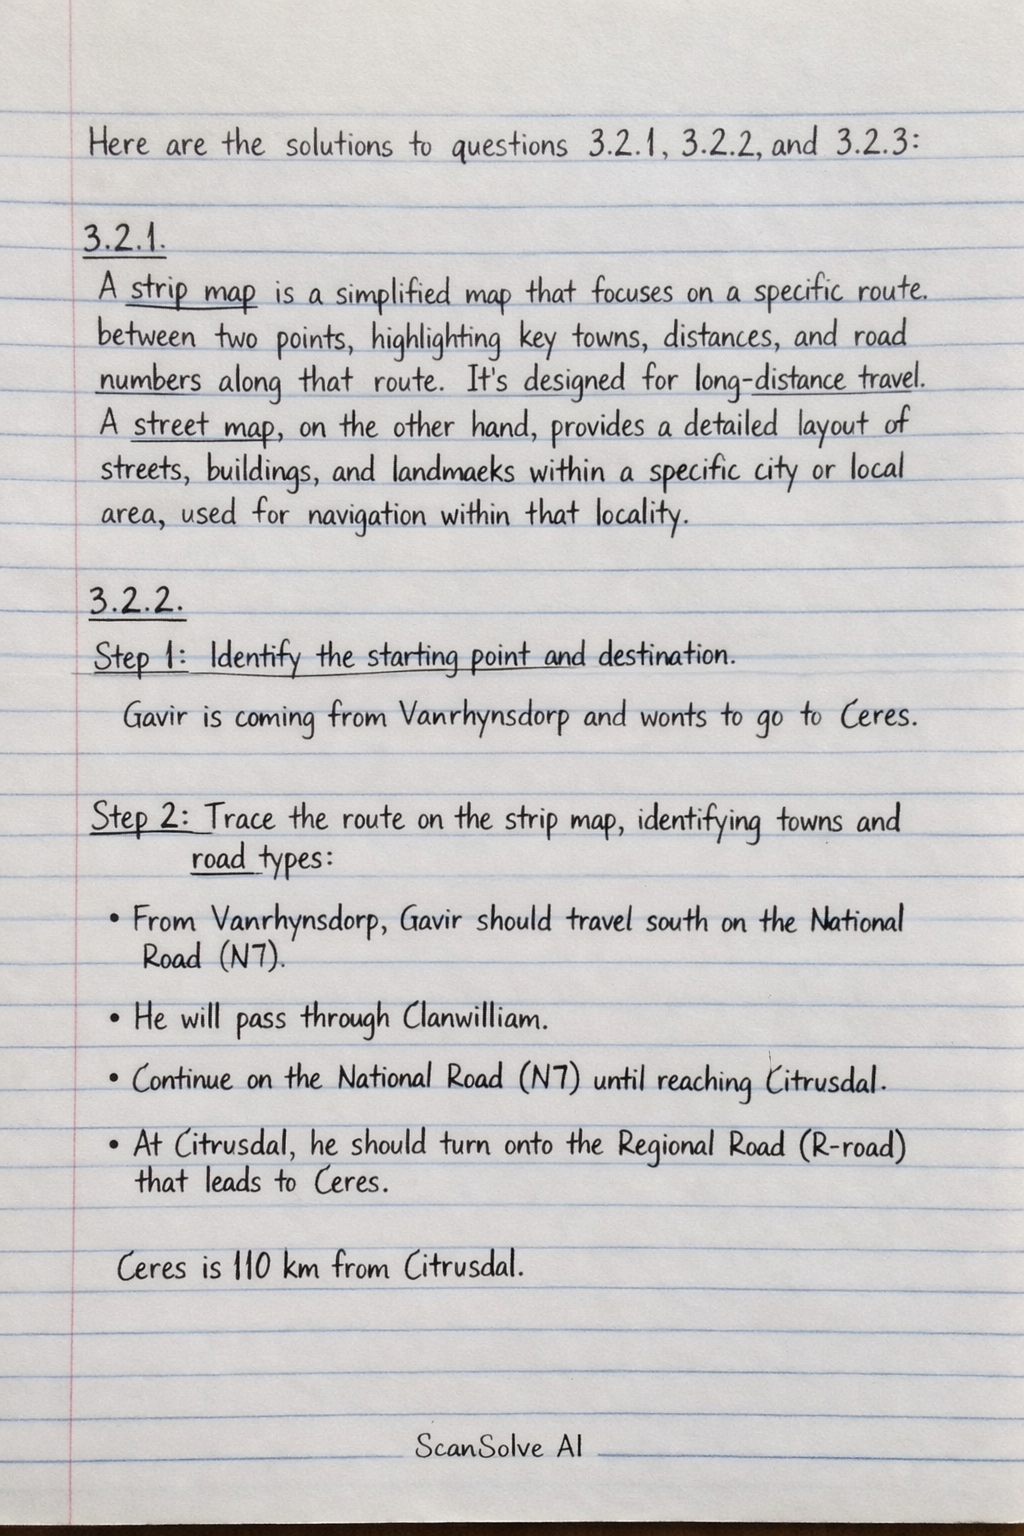 Here are the solutions to questions 3.2.1, 3.2.2, and 3.2.3:
3.2.1.
A strip map is a simplified map that focuses on a specific route.
between two points, highlighting key towns, distances, and road
numbers along that route. It's designed for long-distance travel.
A street map, on the other hand, provides a detailed layout of
streets, buildings, and landmaeks within a specific city or local
area, used for navigation within that locality.
3.2.2.
Step 1: Identify the starting point and destination.
Gavir is coming from Vanrhynsdorp and wonts to go to Ceres.
Step 2: Trace the route on the strip map, identifying towns and
road types:
• From Vanrhynsdorp, Gavir should travel south on the National
Road (N7).
• He will pass through Clanwilliam.
• Continue on the National Road (N7) until reaching Citrusdal.
• At Citrusdal, he should turn onto the Regional Road (R-road)
that leads to Ceres.
Ceres is 110 km from Citrusdal.
ScanSolve AI